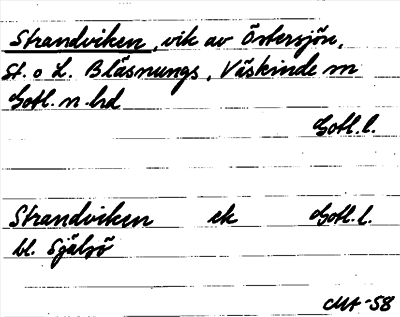 Strandviken, vik av Östersjön,
St. o L. Bläsnungs, Väskinde sn
Gotl. n. hd
Gotl. l.
Strandviken ek Gotl. l.
bl. Själsö
MA -58